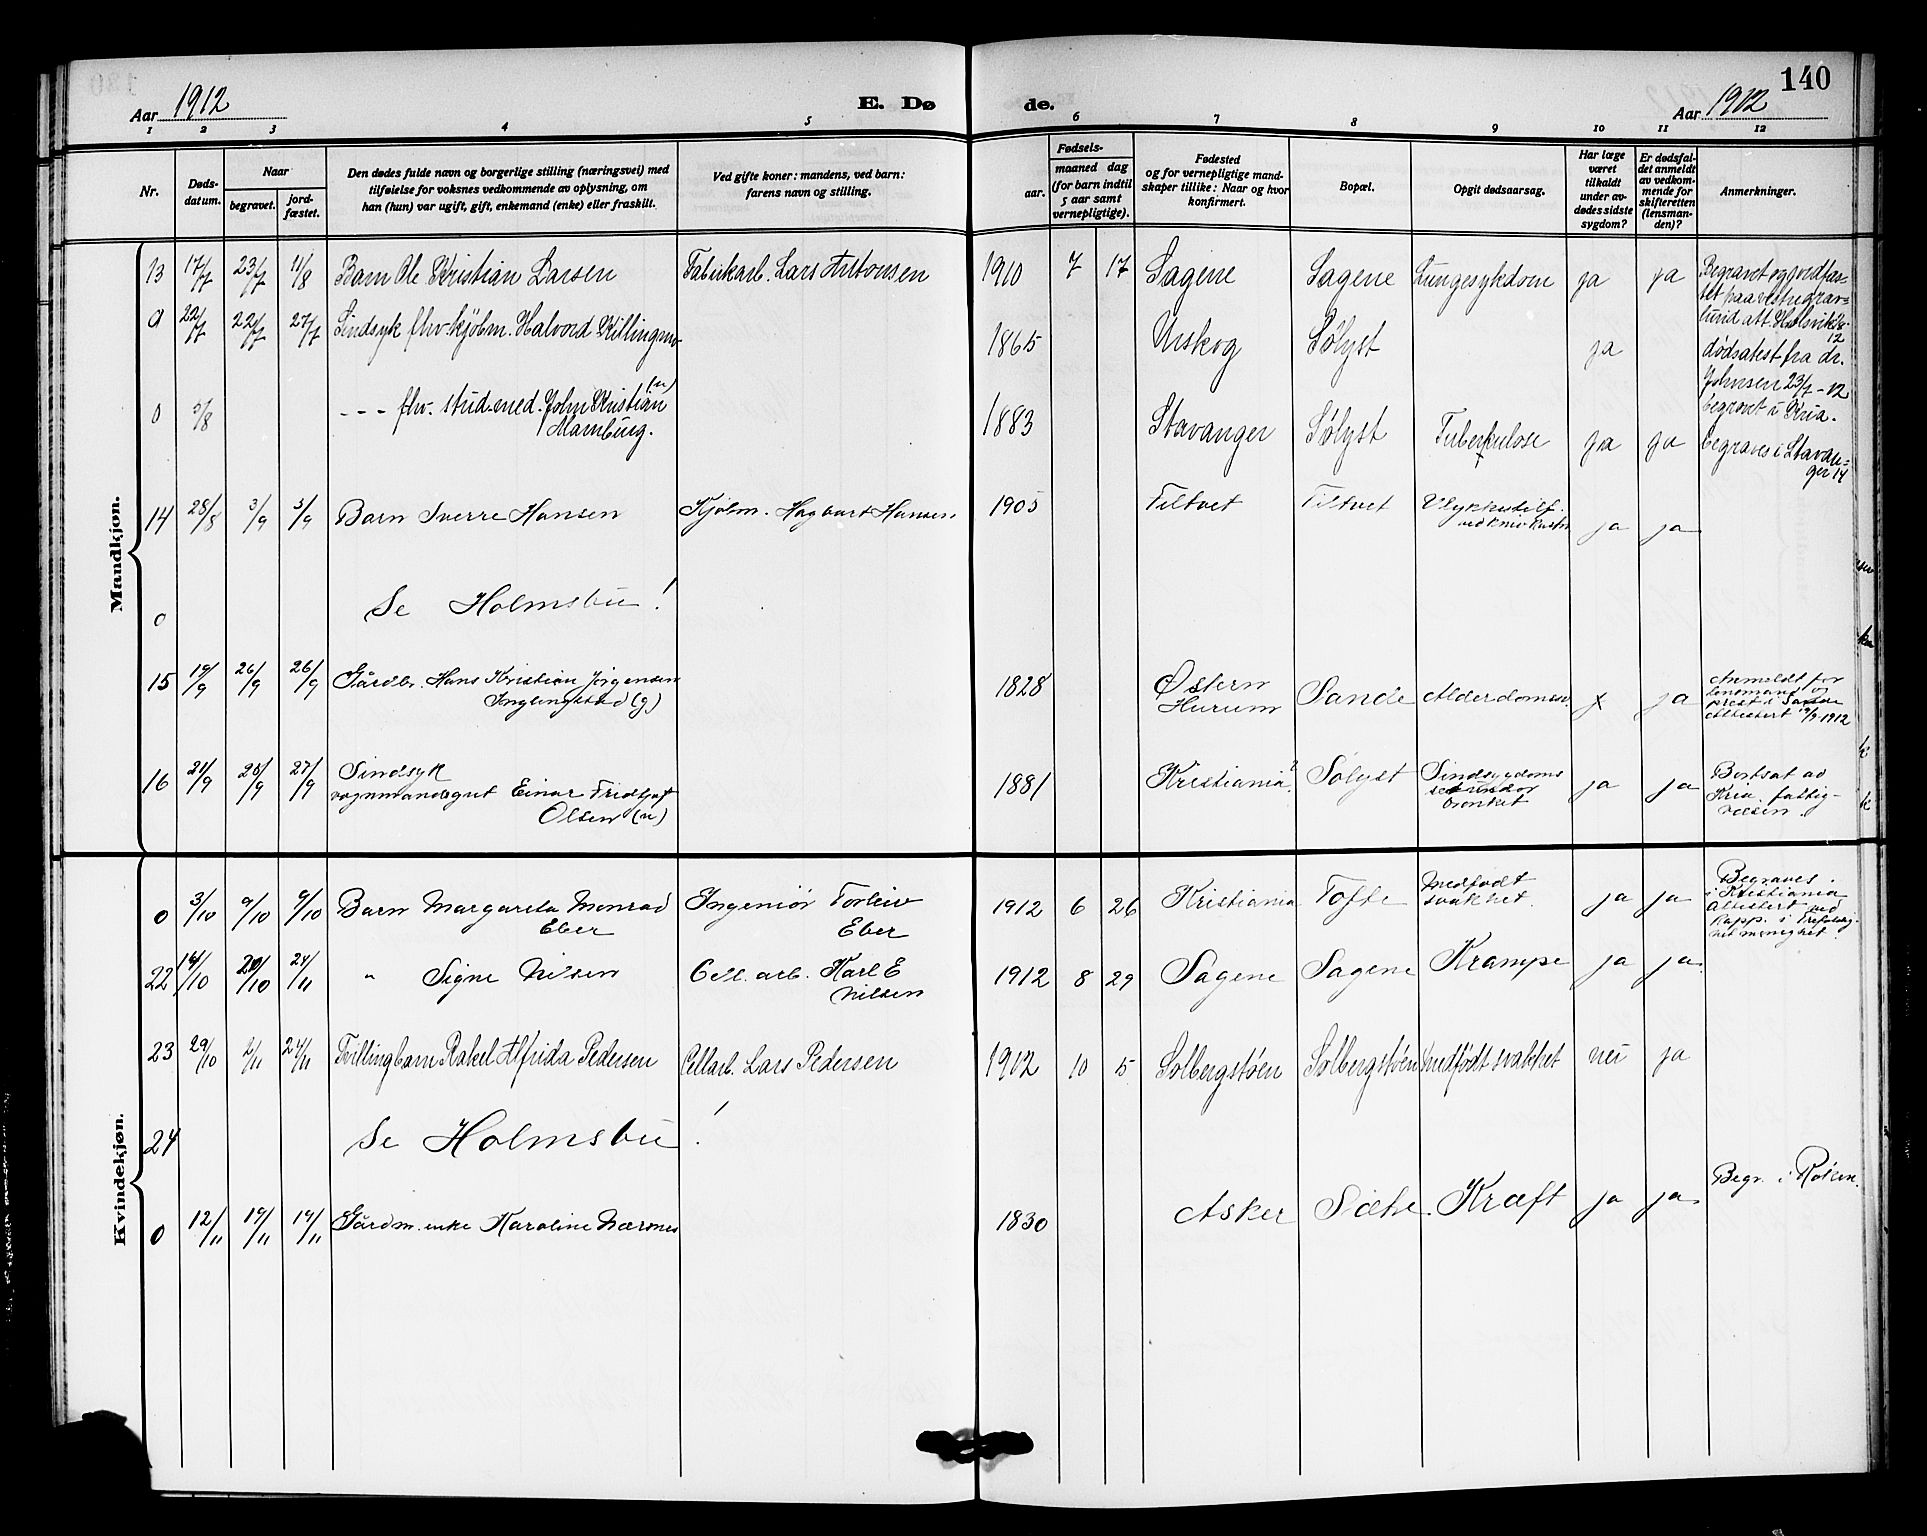 140
Aar 1912 E. Dø de. Aar 1912
1 2 3 4 5 6 7 8 9 10 11 12
Nr. Døds-datum. Naar begravet. jord-fæstet. Den dødes fulde navn og borgerlige stilling (næringsvei) med tilføielse for voksnes vedkommende av oplysning, om han (hun) var ugift, gift, enkemand (enke) eller fraskilt. Ved gifte koner: mandens, ved barn: farens navn og stilling. Fødsels- aar. maaned dag (for barn indtil 5 aar samt vernepligtige). Fødested og for vernepligtige mand-skaper tillike: Naar og hvor konfirmert. Bopæl. Opgit dødsaarsag. Har læge været tilkaldt under av-dødes sidste sygdom? Er dødsfal-det anmeldt av vedkom-mende for skifteretten (lensman-den)? Anmerkninger.
Mandkjøn.
13 17/7 23/7 11/8 Barn Ole Kristian Larsen Fabrikarb. Lars Antonsen 1910 7 17 Sagene Sagene Lungesykdom ja ja
0 22/7 22/7 27/7 Sindsyk fhv. kjøbm. Halvord Killingmo 1865 Urskog Sølyst ja dødsatest fra dr. Johnsen 23/7-12 begravet i Kria.
0 3/8 - - - fhv. stud. med. John Kristian (u) Mamburg. 1883 Stavanger Sølyst Tuberkulose ja ja begraves i Stavanger
14 28/8 3/9 3/9 Barn Sverre Hansen Kjøbm. Hagbart Hansen 1905 Tiltvet Tiltvet Ulykkestilf. ja ja
0 Se Holmsbu!
15 19/9 26/9 26/9 Gårdbr. Hans Kristian Jørgensen Inglingstad (g) 1828 Østern Hurum Sande Alderdomssv. ja Anmeldt for lensmand og prest i Sande Attestert 19/9 1912
16 21/9 25/9 27/9 Sindsyk vognmandsgut Einar Fridtjof Olsen (u) 1881 Kristiania? Sølyst Sindsygdom sekundær bronket ja ja Bortsat av Kria. fattigvæsen.
Kvindekjøn.
0 3/10 9/10 9/10 Barn Margareta Monrad Eber Ingeniør Torleiv Eber 1912 6 26 Kristiania Tofte Medfødt svakhet. ja ja Begraves i Kristiania Attestert ved Kapp. i Trefoldighet menighet.
22 14/10 20/10 24/11 " Signe Nilsen Cell. arb. Karl E Nilsen 1912 8 29 Sagene Sagene Krampe ja ja
23 29/10 2/11 24/11 Tvillingbarn Rakel Alfrida Pedersen Cellarb. Lars Pedersen 1912 10 5 Solbergstøen Solbergstøen medfødt svakhet nei ja
24 Se Holmsbu!
0 12/11 19/11 19/11 Gårdm. enke Karoline Nærsnes 1830 Asker Sæthe. Kræft ja ja Begr. i Røken.